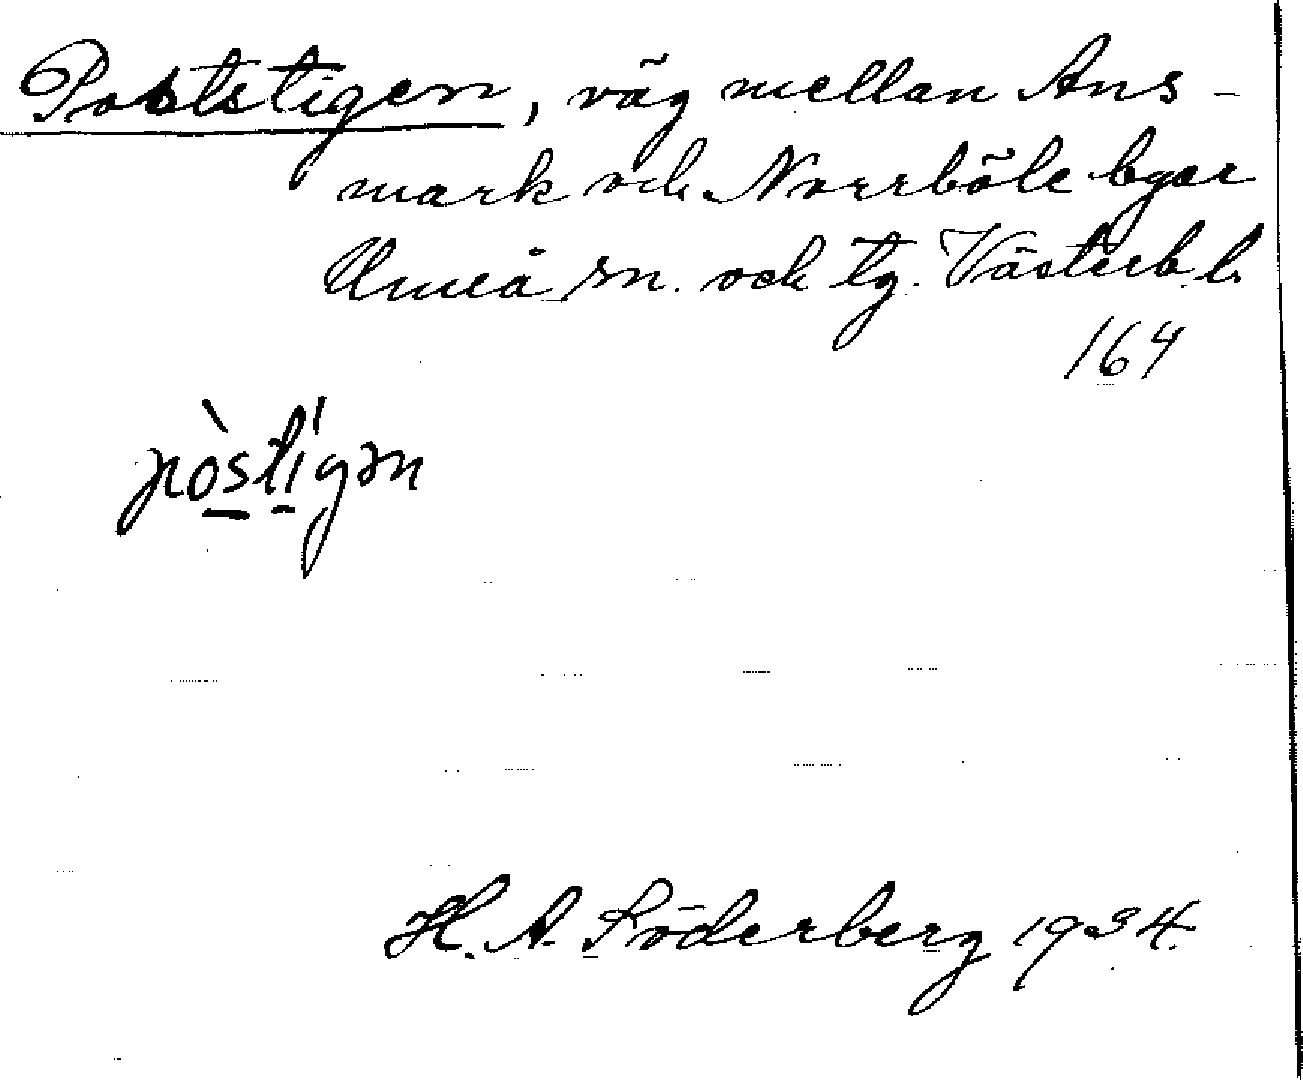 Poststigen, väg mellan Ans-
mark och Norrböle byar
Umeå sn. och tg. Västerb. l.
164
pòstígən
H. A. Söderberg 1934.